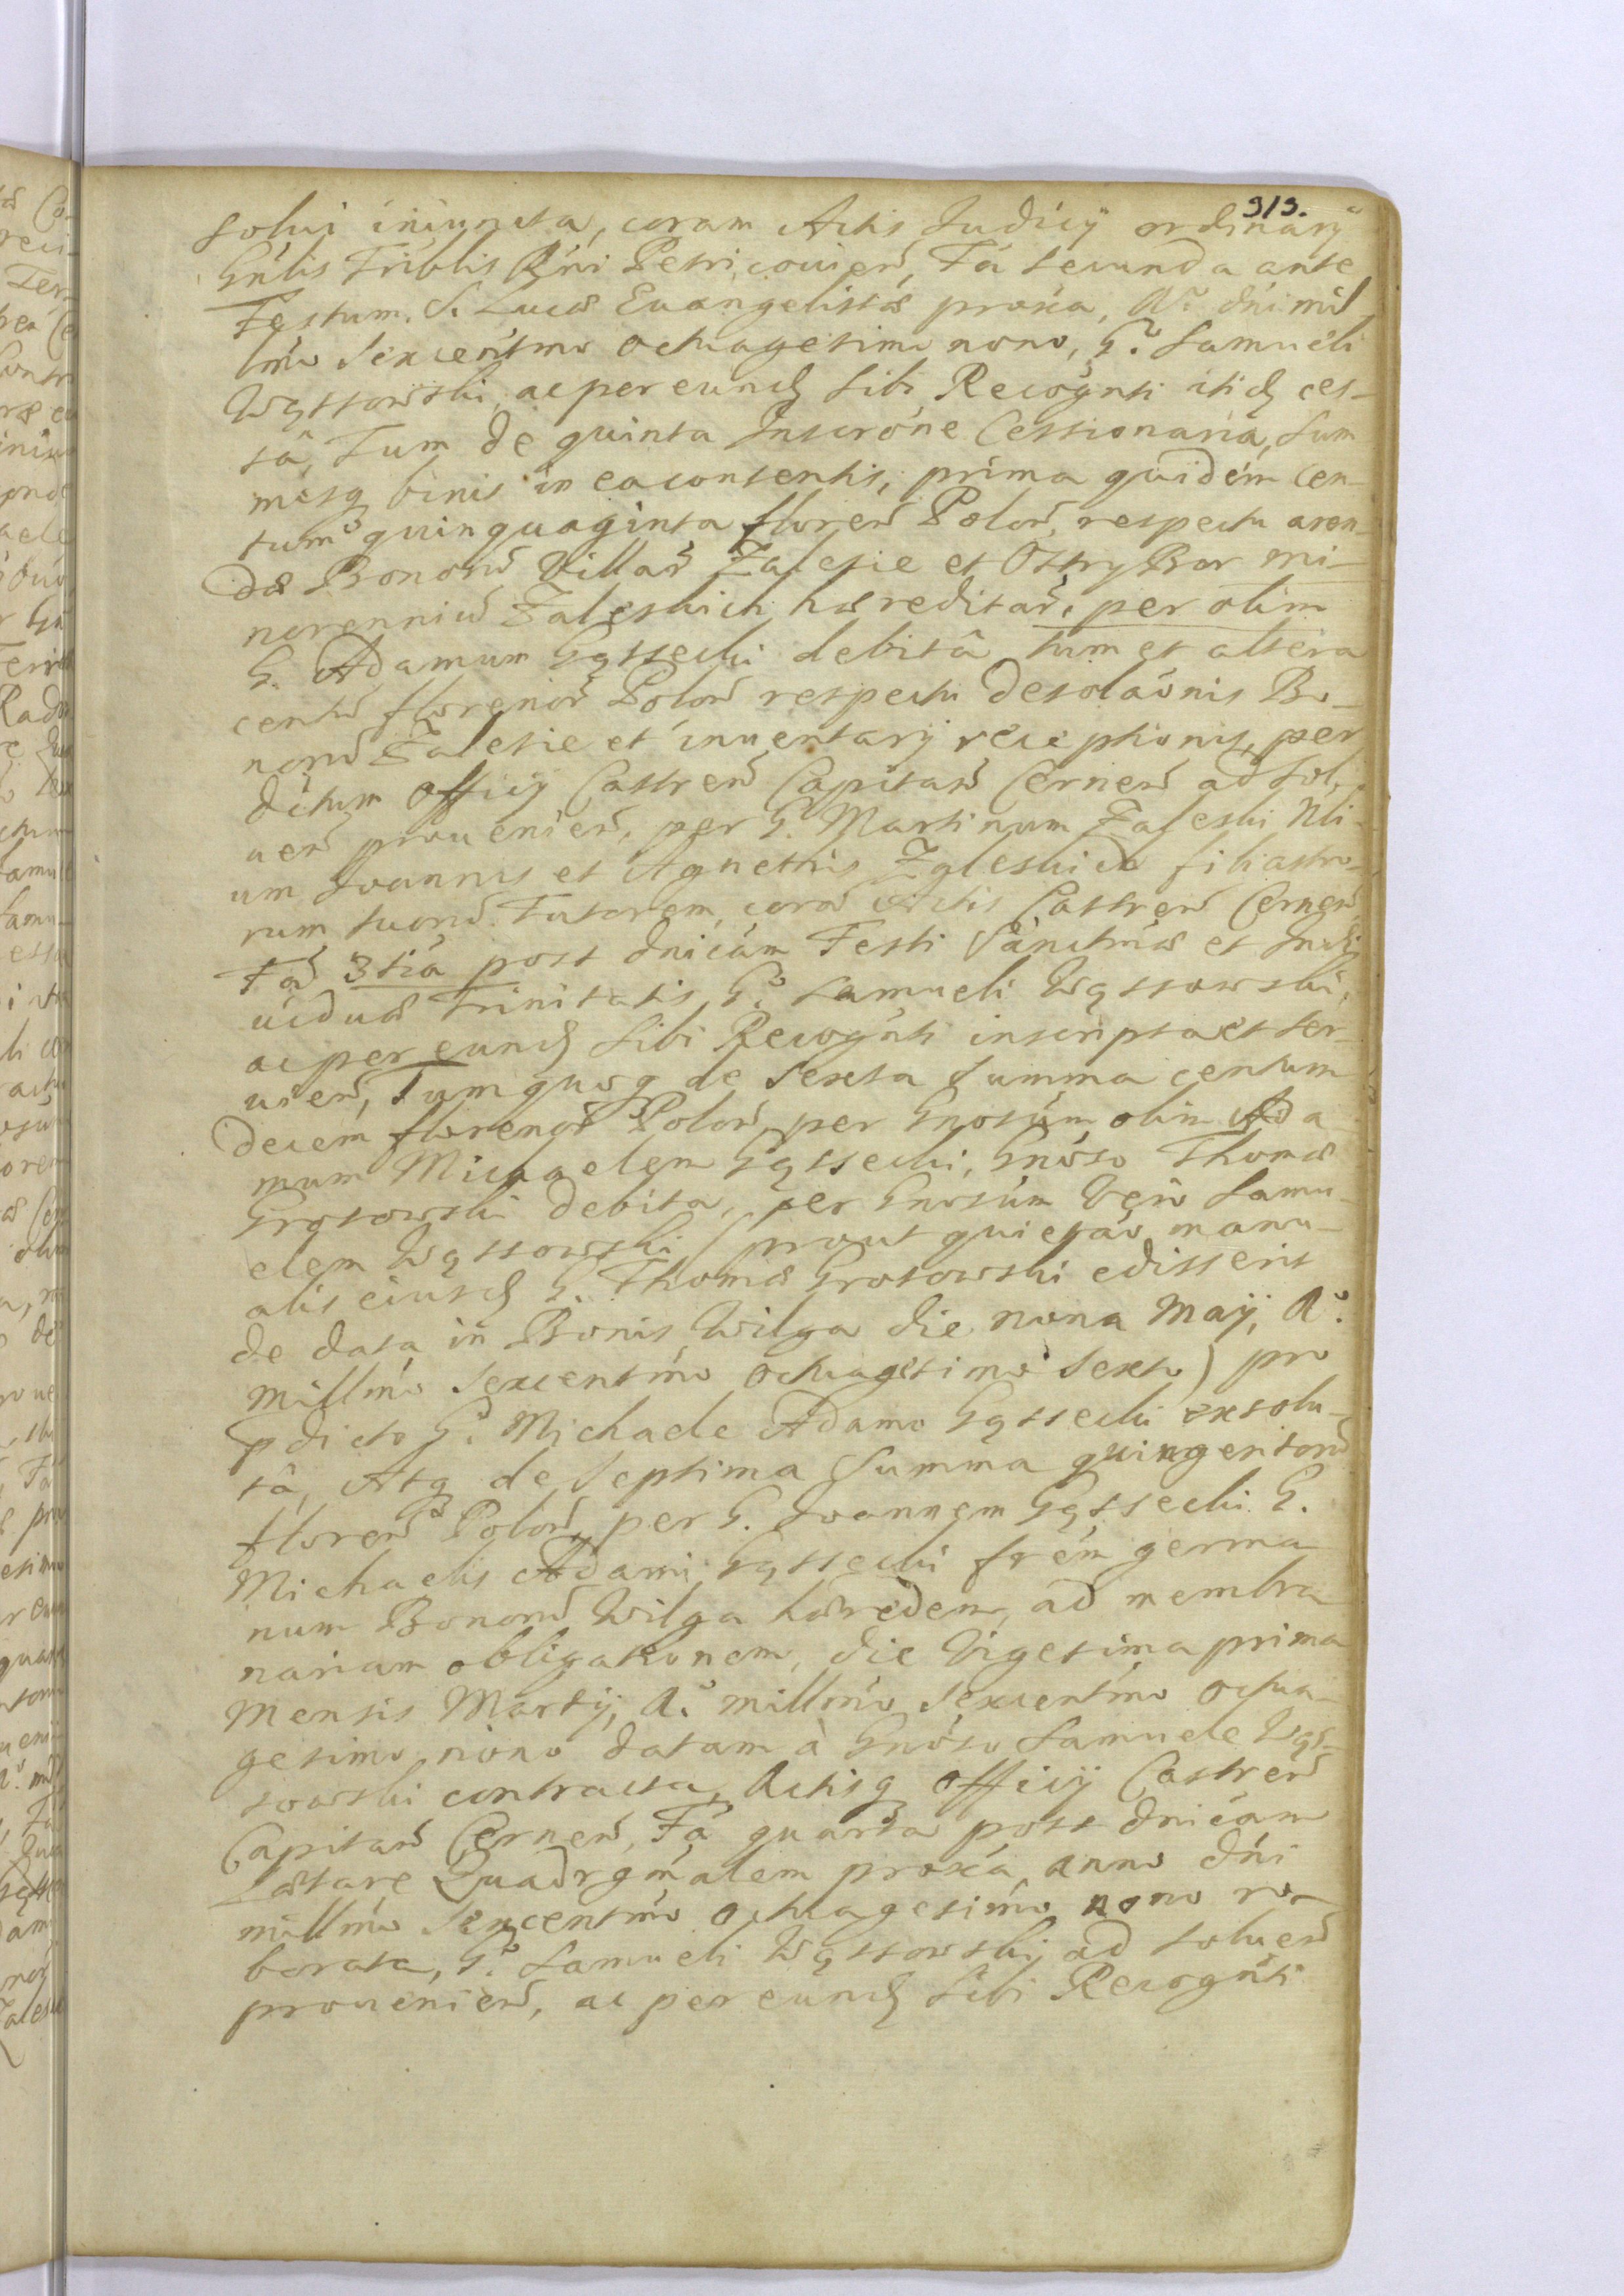 313.
solui iniuncta, coram Actis Judicij ordinarij
Gnlis Triblis Rni Petricouień, Fa secunda ante
Festum S. Lucæ Euangelistæ proxa, Ao dni mil
lmo sexcentmo octuagesimo nono, Go Samueli
Wąssowski, ac per eund sibi Recognti itid ces-
sâ, Tum de quinta Inscrone Cessionaria, Sum
misq binis in ea contentis, prima quidem cen-
tum quinquaginta floreń Polon, respectu aren-
dæ Bonorũ Villar Zalesie et Ostry Bor mi-
norenniũ Zaleskich hæreditar, per olim
G. Adamum Gąssecki debitâ, tum et altera
centũ florenor Polon respectu desolaonis Bo-
norũ Zalesie et inuentarij receptionis, per
dictum Officij Castreń Capitań Cerneń ad sol-
ueń prouenień, per G. Martinum Zaleski Nli-
um Joannis et Agnethis Zaleskich filiastro-
rum suorũ Tutorem, corã Actis Castreń Cerneń
Fa 3tia post dnicam Festi Sanctmæ et Indi
uiduæ Trinitatis, Go Samueli Wąssowski,
ac per eund sibi Recognti inscripta et ser-
uień, Tum quoq de Sexta Summa centum
decem florenor Polon, per Gnosum olim Ada
mum Michaelem Gąssecki, Gnoso Thomæ
Grosowski debita, per Gnosum Vero Samu-
elem Wąssowski (prout quietao manu-
alis eiusd G. Thomæ Grosowski edisserit
de data in Bonis Wilga die nona Maij, Ao
millmo sexcentmo octuagesimo sexto) pro
pdicto Go Michaele Adamo Gąssecki exsolu-
tâ, Atq de Septima Summa quingentorũ
floreń Polon, per G. Joannem Gąssecki G.
Michaelis Adami Gąssecki frem germa
num Bonorũ Wilga hæredem, ad membra
nariam obligationem, die Vigesima prima
mensis Martij, Ao millmo sexcentmo octua-
gesimo nono datam à Gnoso Samuele Wąs-
sowski contracta, Actisq Officij Castreń
Capitań Cerneń, Fa quarta post dnicam
Lætare Quadrgmalem proxa, anno dni
millmo sexcentmo octuagesimo nono ro-
borata, Go Samueli Wąssowski ad solueń
prouenień, ac per eund sibi Recognti